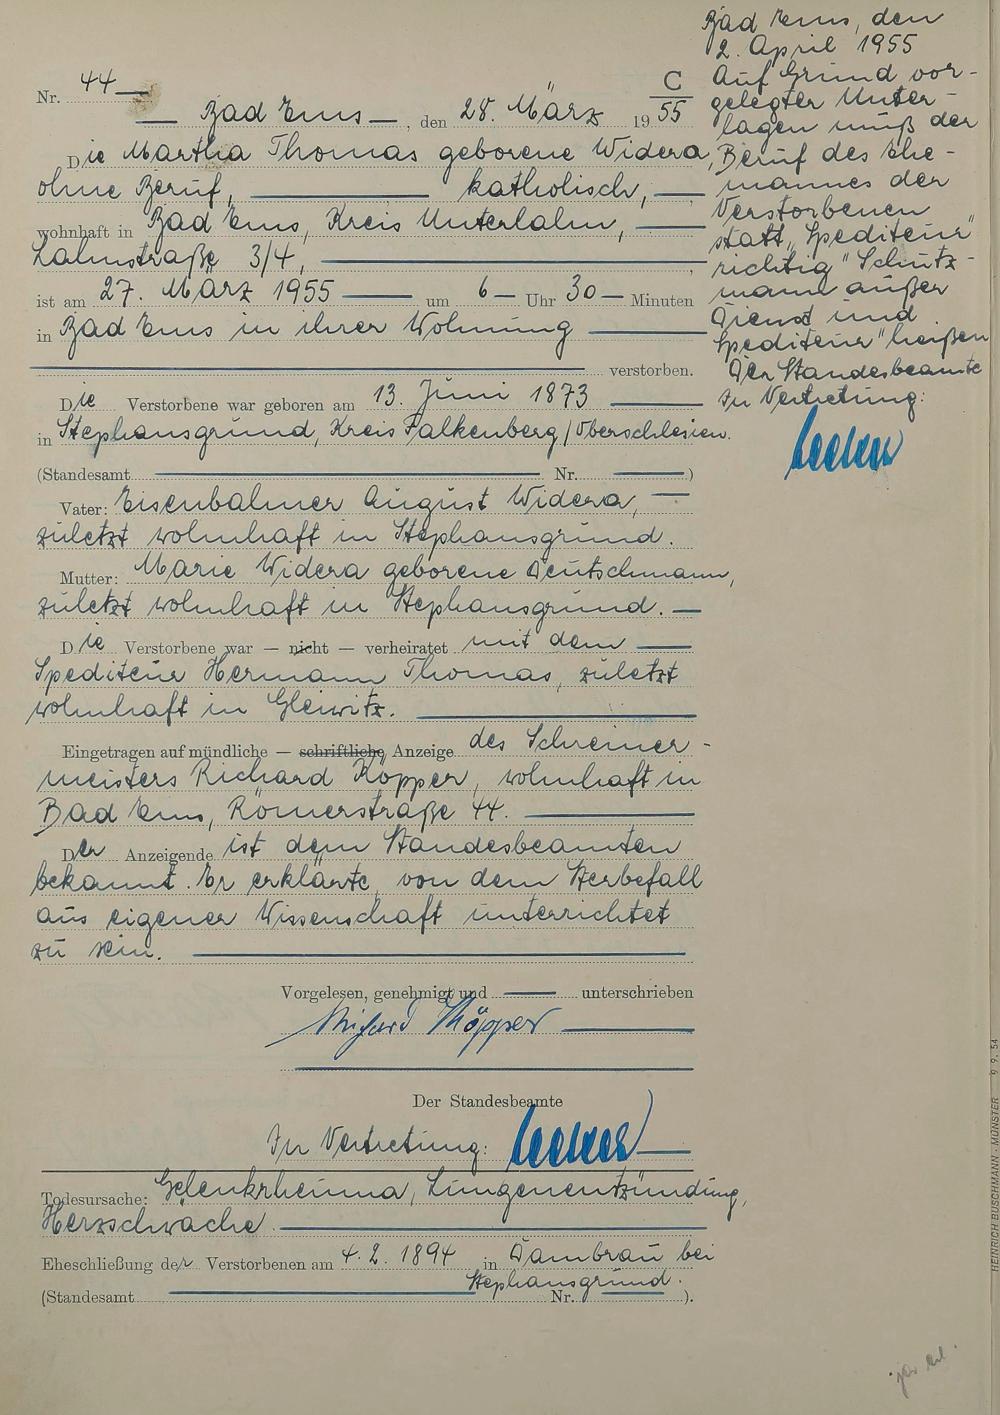 Nr. 44
C
55
Bad Ems, den 28. März 1955
Die Martha Thomas geborene Widera,
ohne Beruf, katholisch,
wohnhaft in Bad Ems, Kreis Unterlahn,
Lahnstraße 3/4,
ist am 27. März 1955 um 6 Uhr 30 Minuten
in Bad Ems in ihrer Wohnung
verstorben.
Die Verstorbene war geboren am 13. Juni 1873
in Stephansgrund, Kreis Falkenberg/Oberschlesien.
(Standesamt Nr. )
Vater: Eisenbahner August Widera,
zuletzt wohnhaft in Stephansgrund.
Mutter: Marie Widera geborene Deutschmann,
zuletzt wohnhaft in Stephansgrund.
Die Verstorbene war — nicht — verheiratet mit dem
Spediteur Hermann Thomas, zuletzt
wohnhaft in Gleiwitz.
Eingetragen auf mündliche — schriftliche Anzeige des Schreiner-
meisters Richard Köpper, wohnhaft in
Bad Ems, Römerstraße 44.
Der Anzeigende ist dem Standesbeamten
bekannt. Er erklärte, von dem Sterbefall
aus eigener Wissenschaft unterrichtet
zu sein.
Vorgelesen, genehmigt und unterschrieben
Richard Köpper
Der Standesbeamte
In Vertretung:
Todesursache: Gelenkrheuma, Lungenentzündung,
Herzschwäche.
Eheschließung der Verstorbenen am 4.2.1894 in Dambrau bei
Stephansgrund.
(Standesamt Nr. ).
Bad Ems, den
2. April 1955
Auf Grund vor-
gelegter Unter-
lagen muß der
Beruf des Ehe-
mannes der
Verstorbenen
statt „Spediteur"
richtig "Schutz-
mann außer
Dienst und
Spediteur" heißen
Der Standesbeamte
In Vertretung:
HEINRICH BUSCHMANN · MÜNSTER 9 9. 54